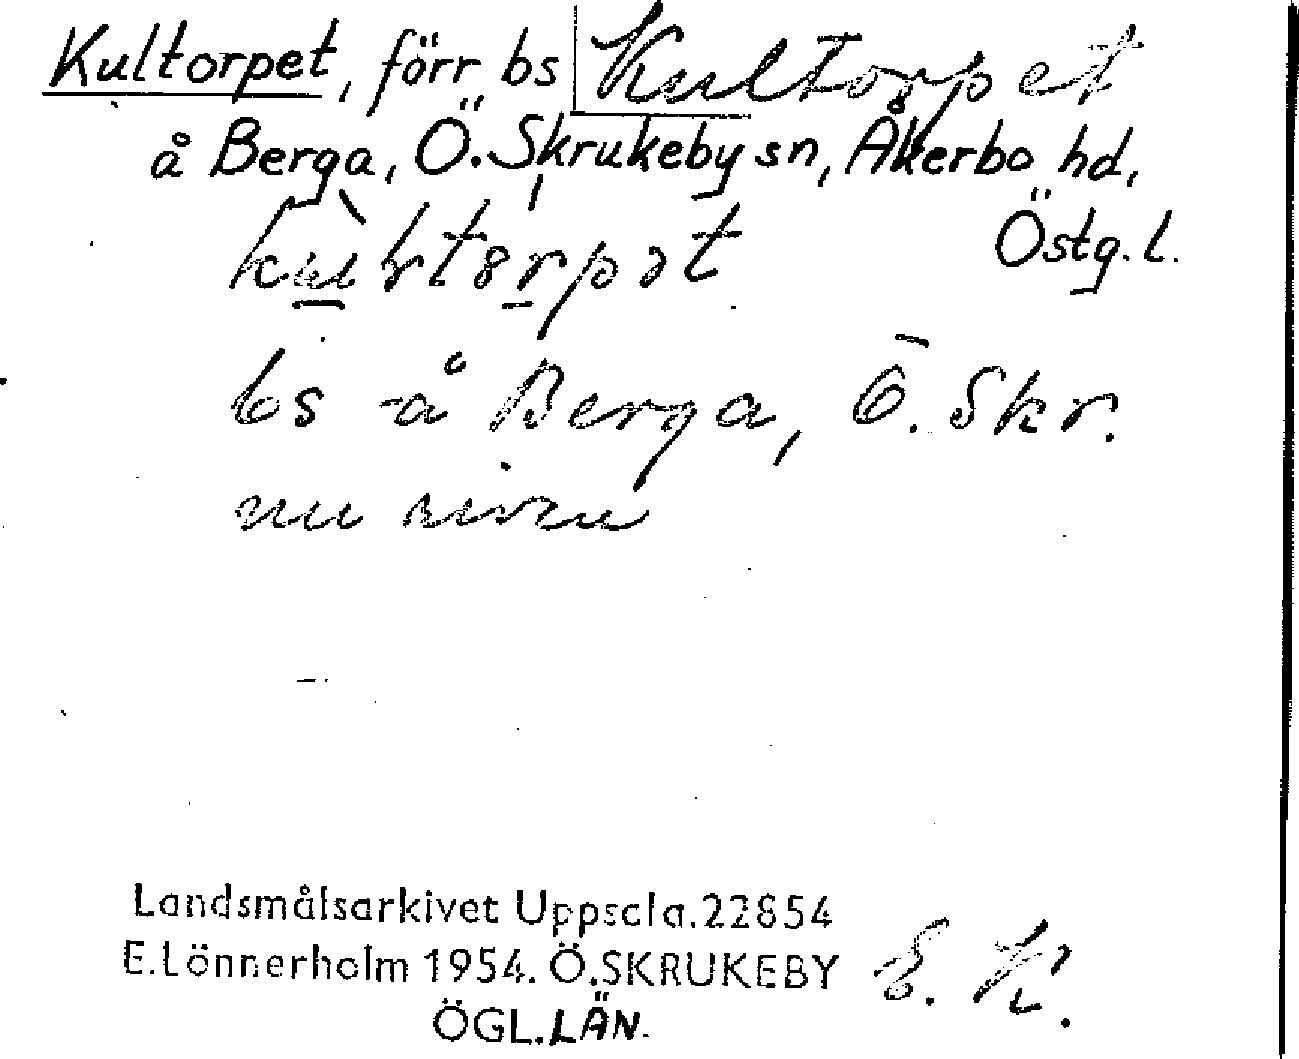 Kultorpet, förr bs Kultorpet
å Berga, Ö. Skrukeby sn, Åkerbo hd,
Östg. l.
bs å Berga, Ö. Skr.
nu riven
Landsmålsarkivet Uppsala. 22854
E. Lönnerholm 1954. Ö. SKRUKEBY
ÖGL. LÄN.
E. K.